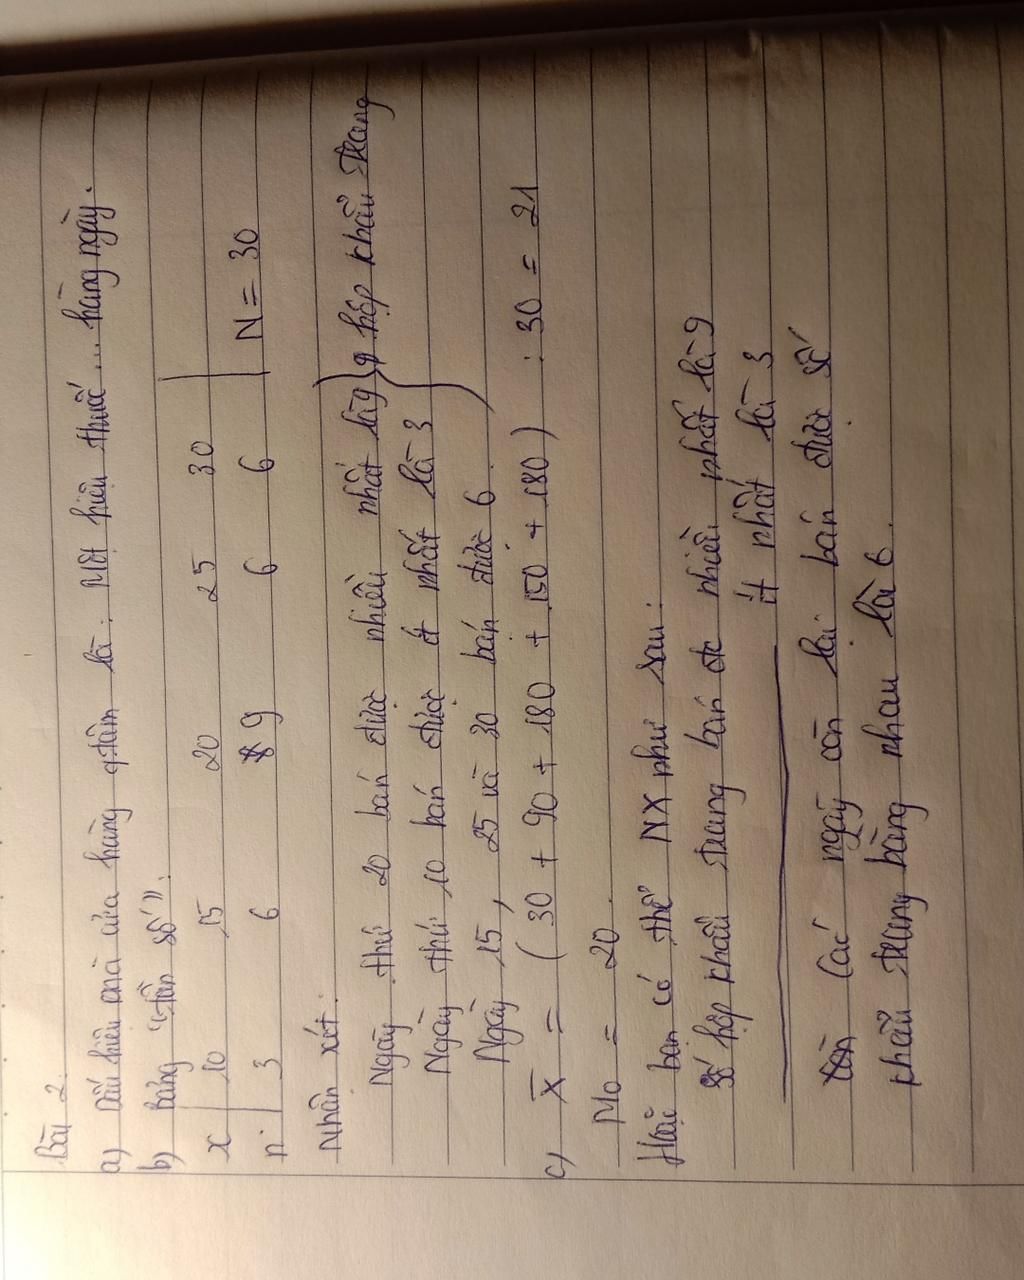 Bài 2.
a) Dấu hiệu mà cửa hàng q tâm là: Một hiệu thuốc ... hàng ngày.
b) bảng "tần số".
x 10 15 20 25 30
n 3 6 9 6 6 N = 30
Nhận xét:
Ngày thứ 20 bán được nhiều nhất là 9
Ngày thứ 10 bán được ít nhất là 3
Ngày 15, 25 và 30 bán được 6.
hộp khẩu trang
c) X̄ = (30 + 90 + 180 + 150 + 180) : 30 = 21
Mo = 20.
Hoặc bạn có thể NX như sau:
Số hộp khẩu trang bán đc nhiều nhất là 9
ít nhất là 3
Các ngày còn lại bán được số
khẩu trang bằng nhau là 6.